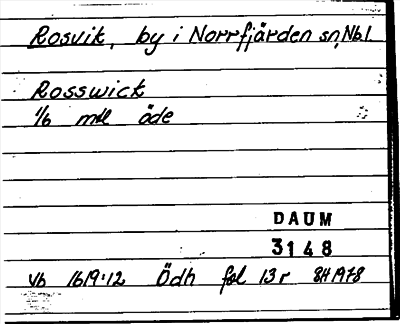 Rosvik, by i Norrfjärden sn, Nbl.
Rosswick
1/6 mtl öde
DAUM
3148
Vb 1619:12 Ödh fol 13r BH 1978